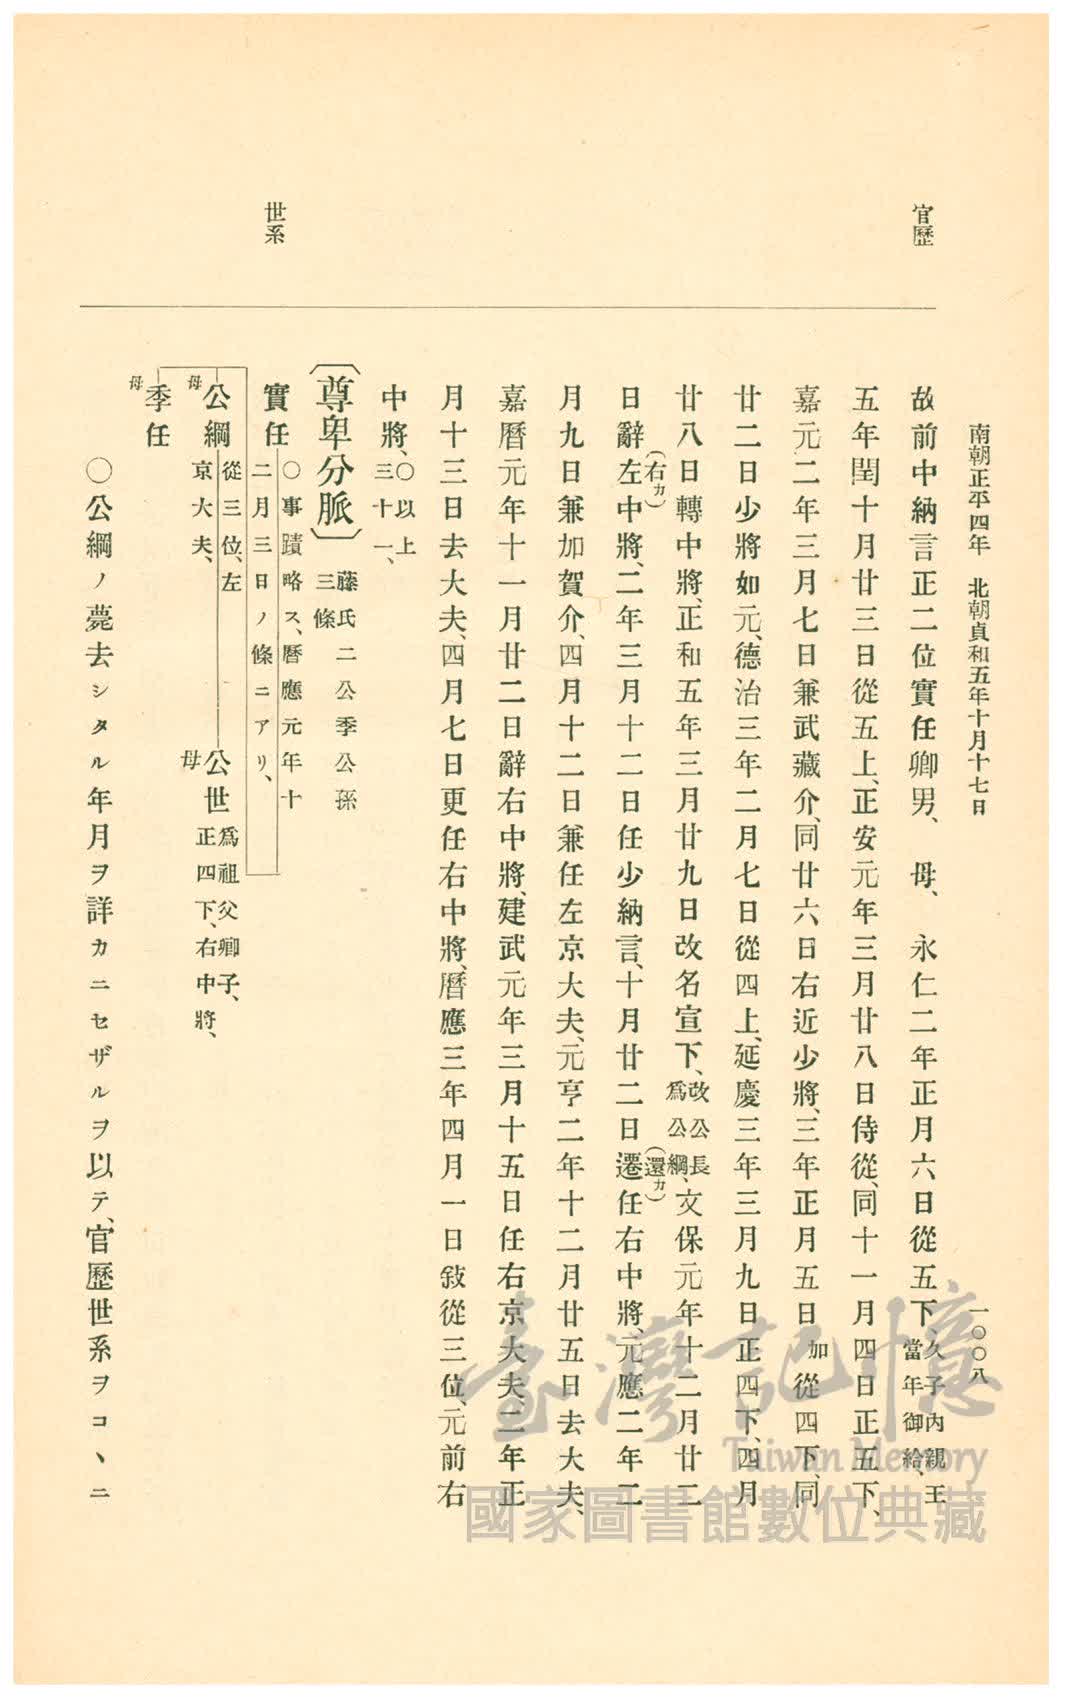 南朝正平四年　北朝貞和五年十月十七日
一〇〇八
官歷
故前中納言正二位實任卿男、　母、　永仁二年正月六日從五下、久子內親王當年御給、
五年閏十月廿三日從五上、正安元年三月廿八日侍從、同十一月四日正五下、
嘉元二年三月七日兼武藏介、同廿六日右近少將、三年正月五日加從四下、同
廿二日少將如元、德治三年二月七日從四上、延慶三年三月九日正四下、四月
廿八日轉中將、正和五年三月廿九日改名宣下、改公長爲公綱、文保元年十二月廿二
日辭左(右カ)中將、二年三月十二日任少納言、十月廿二日遷(還カ)任右中將、元應二年二
月九日兼加賀介、四月十二日兼任左京大夫、元亨二年十二月廿五日去大夫、
嘉曆元年十一月廿二日辭右中將、建武元年三月十五日任右京大夫、二年正
月十三日去大夫、四月七日更任右中將、曆應三年四月一日敍從三位、元前右
中將、〇以上三十一、
世系
〔尊卑分脈〕藤氏二公季公孫三條
實任〇事蹟略ス、曆應元年十二月三日ノ條ニアリ、
公綱從三位、左京大夫、
母
公世爲祖父卿子、正四下、右中將、
母
季任
母
〇公綱ノ薨去シタル年月ヲ詳カニセザルヲ以テ、官歷世系ヲコヽニ
臺灣記憶
Taiwan Memory
國家圖書館數位典藏